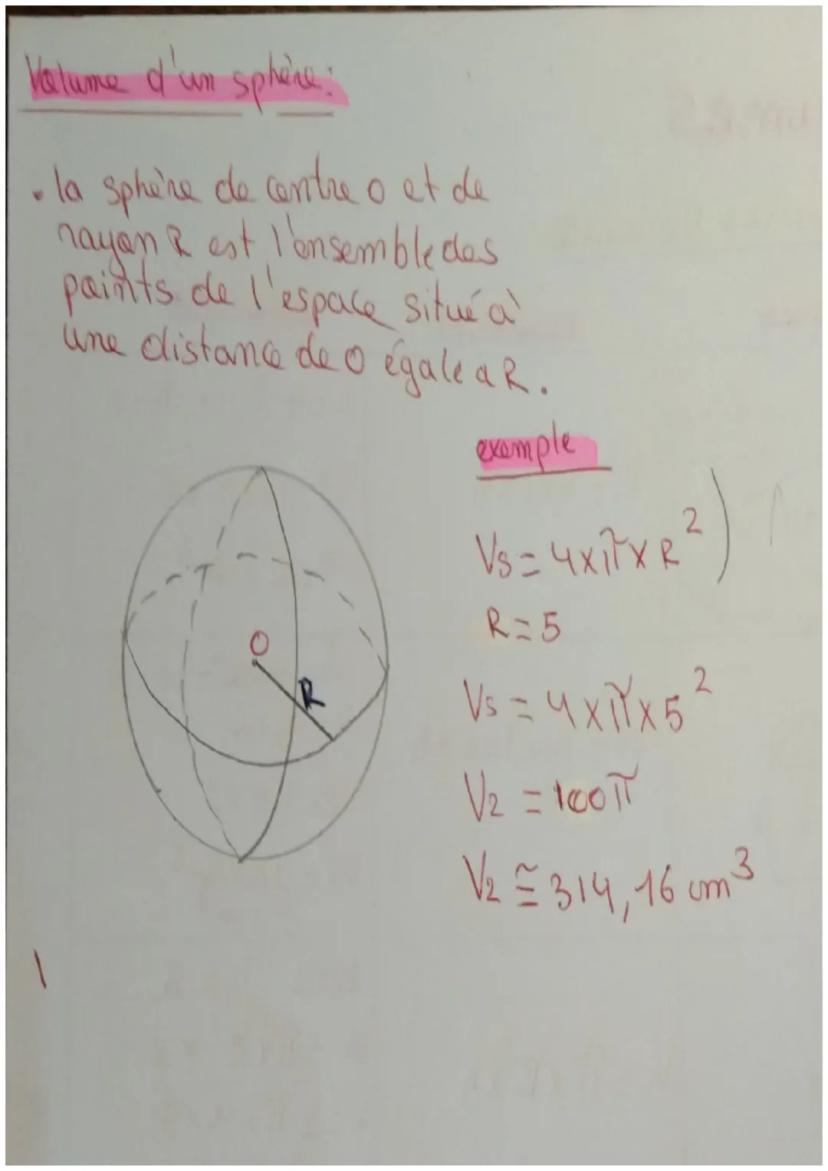 Volume d'un sphère:
. la sphère de centre O et de
rayon R est l'ensemble des
points de l'espace situé à
une distance de O égale a R.
exemple
Vs = 4 x π x R²)
R = 5
O
R
Vs = 4 x π x 5²
V2 = 100π
V2 ≅ 314,16 cm³